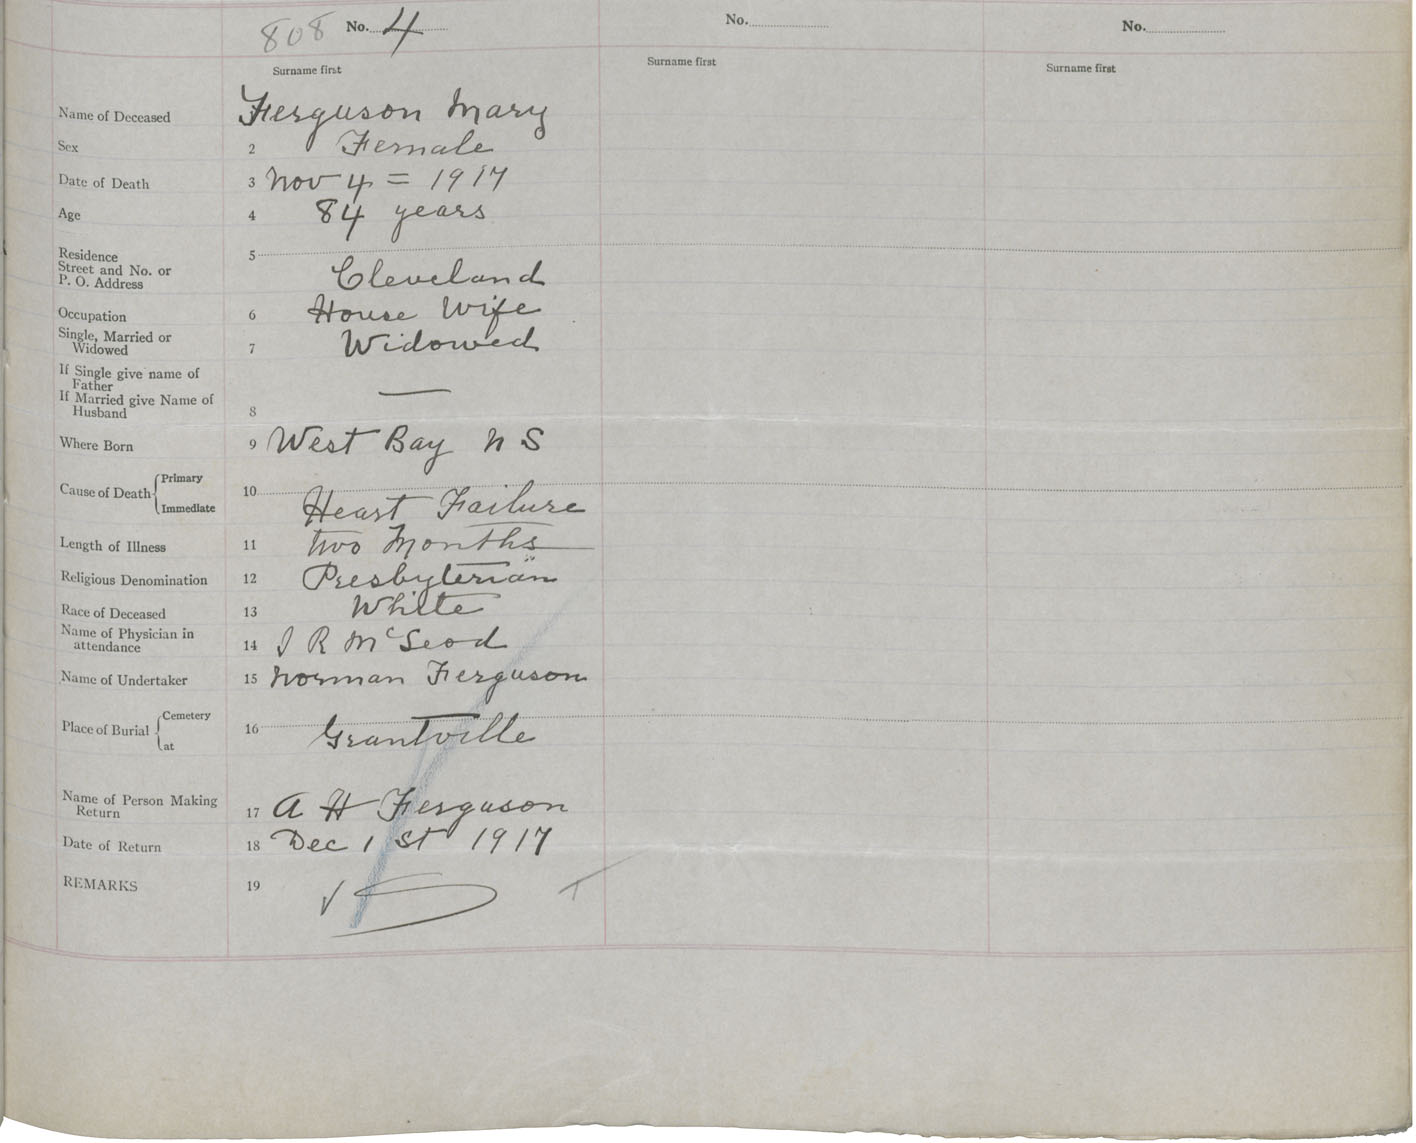 808 No. 4 No. No.
Surname first Surname first Surname first
Name of Deceased Ferguson Mary
Sex 2 Female
Date of Death 3 Nov 4 = 1917
Age 4 84 years
Residence 5
Street and No. or
P. O. Address Cleveland
Occupation 6 House Wife
Single, Married or
Widowed 7 Widowed
If Single give name of
Father
If Married give Name of —
Husband 8
Where Born 9 West Bay N S
Cause of Death Primary 10
Immediate Heart Failure
Length of Illness 11 two Months
Religious Denomination 12 Presbyterian
Race of Deceased 13 White
Name of Physician in
attendance 14 J R McLeod
Name of Undertaker 15 Norman Ferguson
Place of Burial Cemetery 16
at Grantville
Name of Person Making
Return 17 A H Ferguson
Date of Return 18 Dec 1 st 1917
REMARKS 19